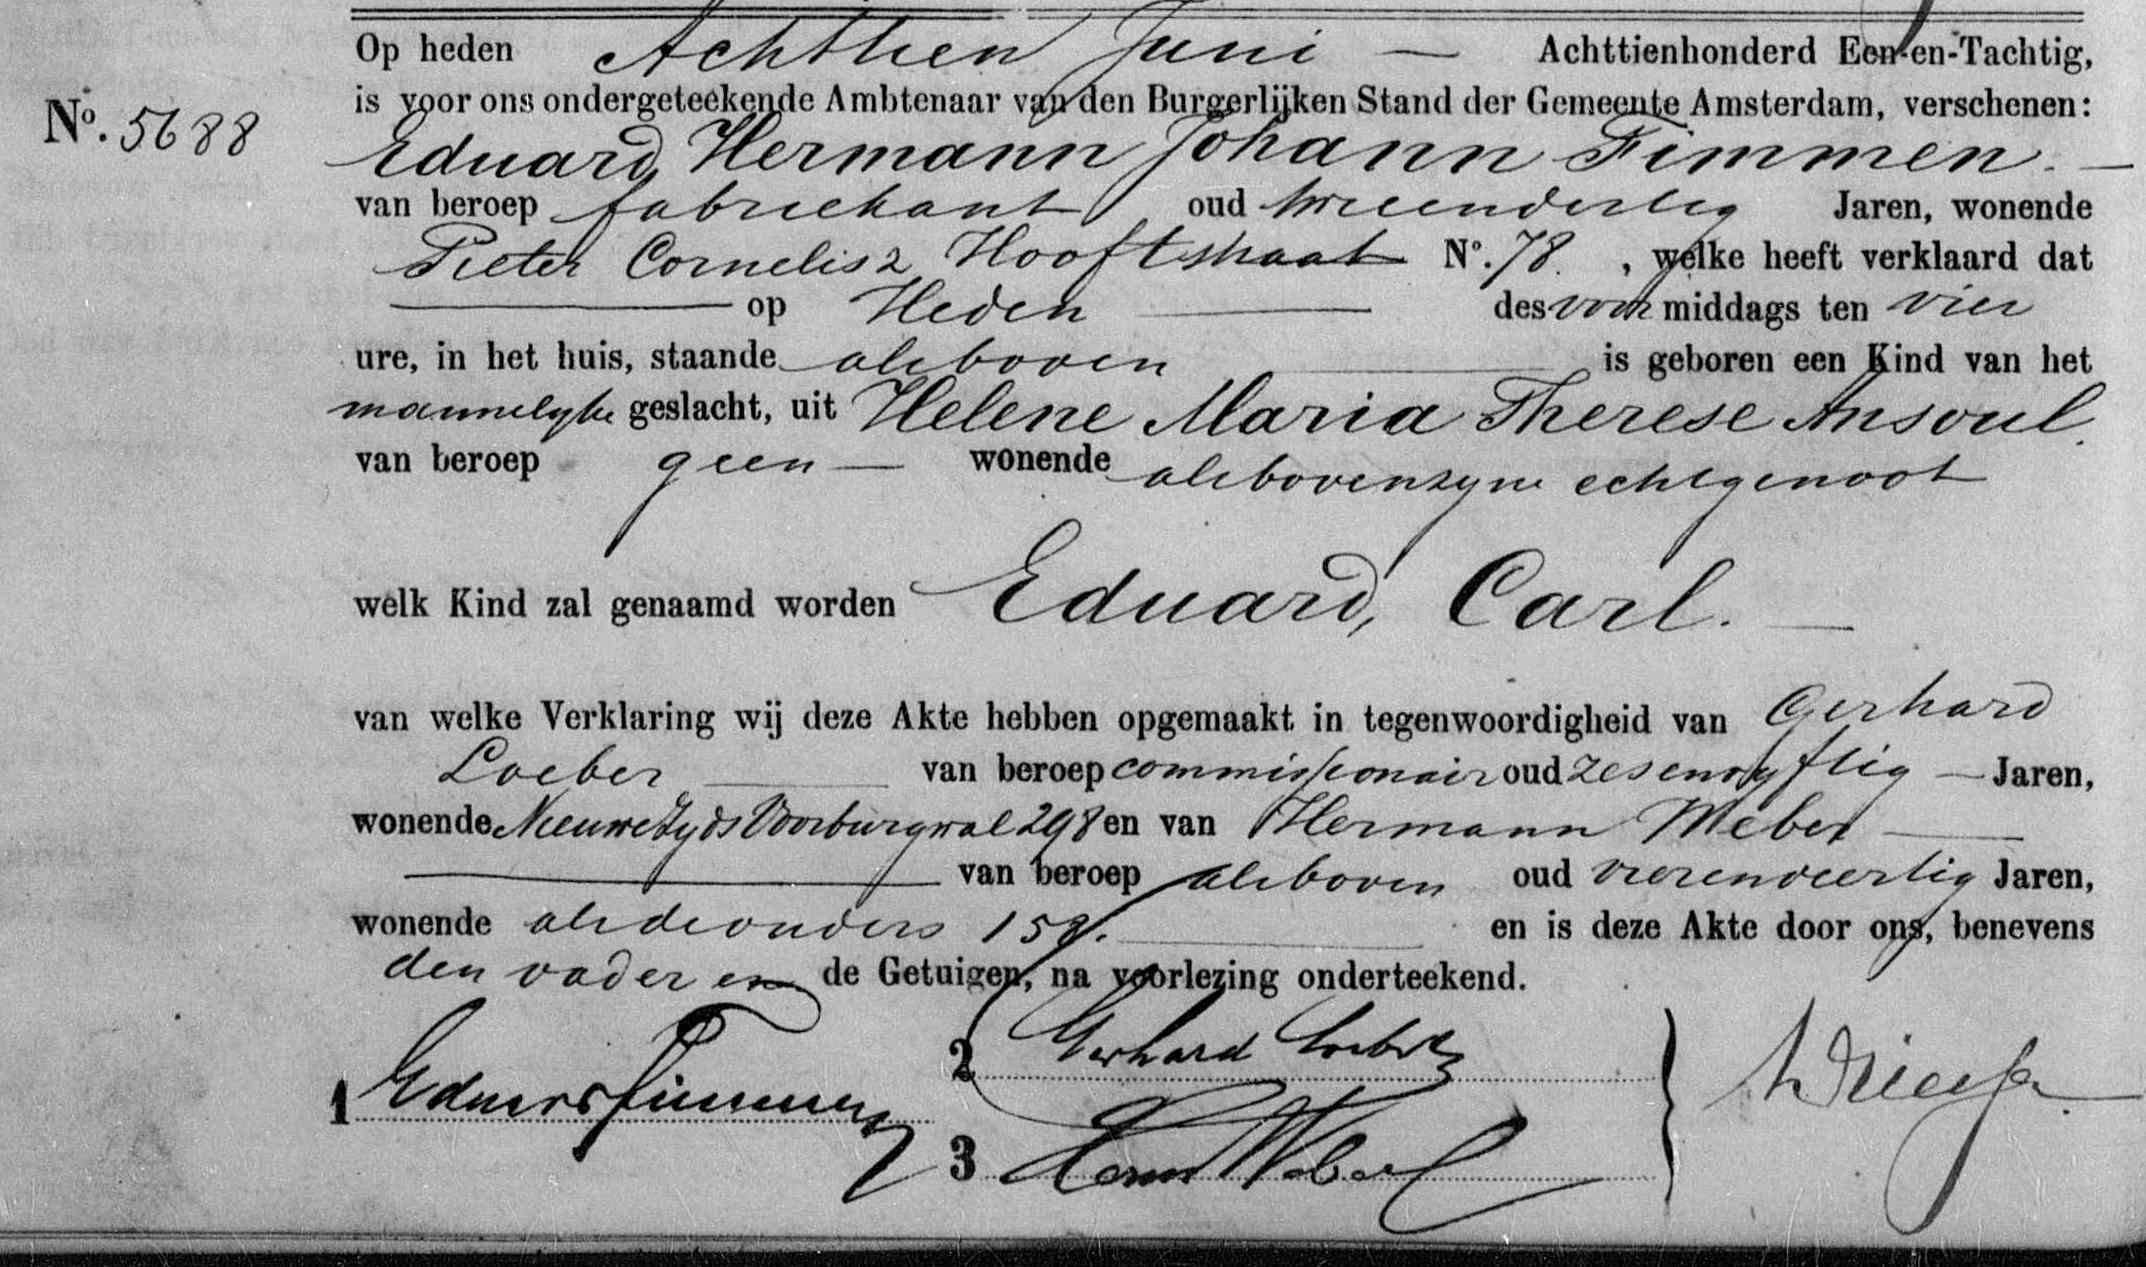 Op heden Achttien Juni — Achttienhonderd Een-en-Tachtig,
is voor ons ondergeteekende Ambtenaar van den Burgerlijken Stand der Gemeente Amsterdam, verschenen:
No. 5688
Eduard, Hermann Johann Fimmen. —
van beroep fabriekant oud tweeendertig Jaren, wonende
Pieter Cornelisz Hooftstraat No. 78. , welke heeft verklaard dat
— op Heden — des voor middags ten vier
ure, in het huis, staande alsboven — is geboren een Kind van het
mannelyke geslacht, uit Helene Maria Therese Ansoul.
van beroep geen — wonende alsboven zyne echtgenoot
welk Kind zal genaamd worden Eduard, Carl. —
van welke Verklaring wij deze Akte hebben opgemaakt in tegenwoordigheid van Gerhard
Loeber — van beroep commissionair oud zesenvyftig — Jaren,
wonende Nieuwezyds Voorburgwal 298 en van Hermann Weber —
— van beroep alsboven oud vierenveertig Jaren,
wonende alsdeonders 158. — en is deze Akte door ons, benevens
den vader en de Getuigen, na voorlezing onderteekend.
1 Eduard Fimmen
2 Gerhard Loeber
3 Herm Weber